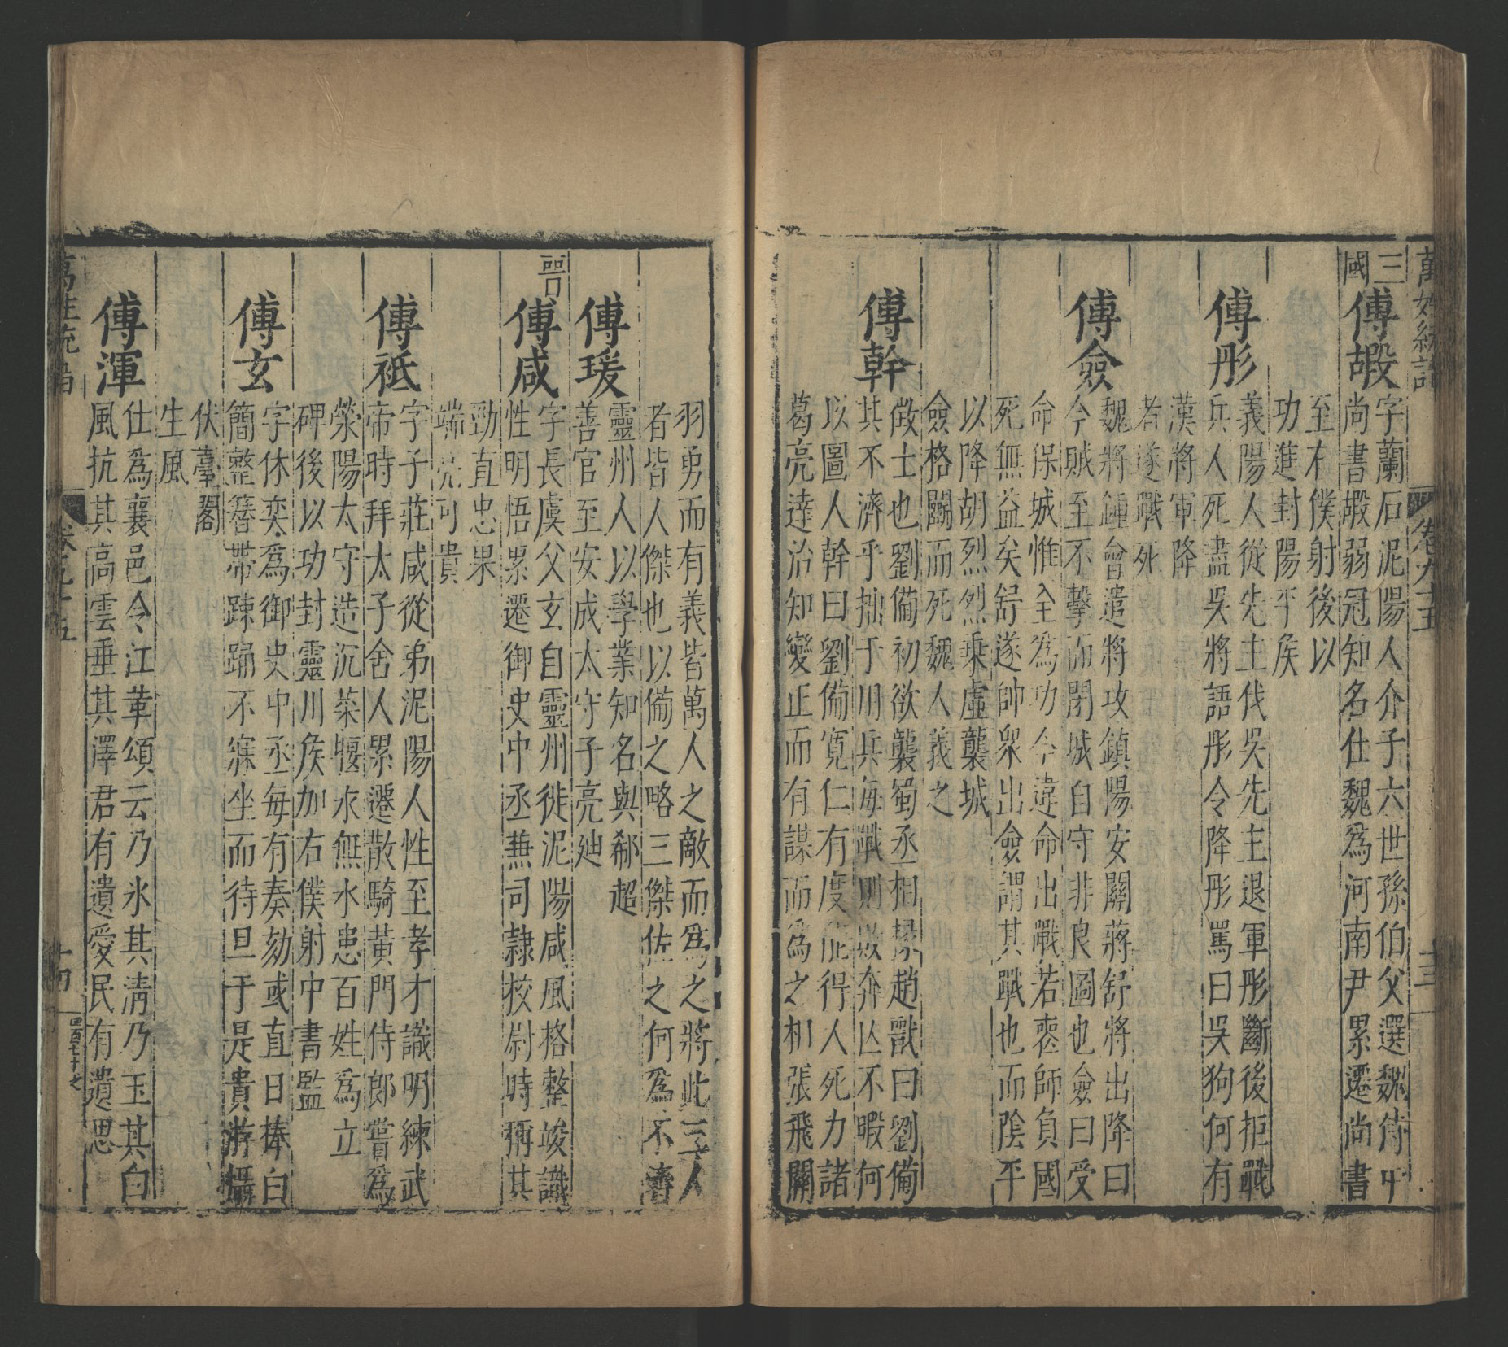 萬姓統譜 卷九十五 十三
三國
傅嘏 字蘭石泥陽人介子六世孫伯父選魏侍中
尚書嘏弱冠知名仕魏爲河南尹累遷尚書
至右僕射後以
功進封陽平侯
傅彤 義陽人從先主伐吳先主退軍彤斷後拒戰
兵人死盡吳將語彤令降彤罵曰吳狗何有
漢將軍降
者遂戰死
傅僉 魏將鍾會遣將攻鎮陽安關蔣舒將出降曰
今賊至不擊而閉城自守非良圖也僉曰受
命保城惟全爲功今違命出戰若喪師負國
死無益矣舒遂帥衆出僉謂其戰也而陰平
以降胡烈烈乘虛襲城
僉格鬬而死魏人義之
傅幹 徵士也劉備初欲襲蜀丞相掾趙戩曰劉備
其不濟乎拙于用兵每戰則敗奔亾不暇何
以圖人幹曰劉備寬仁有度能得人死力諸
葛亮達治知變正而有謀而爲之相張飛關
羽勇而有義皆萬人之敵而爲之將此三人
者皆人傑也以備之略三傑佐之何爲不濟
傅瑗 靈州人以學業知名與郗超
善官至安成太守子亮迪
晉
傅咸 字長虞父玄自靈州徙泥陽咸風格整峻識
性明悟累遷御史中丞兼司隸校尉時稱其
勁直忠果
端亮可貴
傅祇 字子莊咸從弟泥陽人性至孝才識明練武
帝時拜太子舍人累遷散騎黃門侍郎嘗爲
滎陽太守造沉萊堰水無水患百姓爲立
碑後以功封靈川侯加右僕射中書監
傅玄 字休奕爲御史中丞每有奏劾或直日捧白
簡整簪帶踈踊不寐坐而待旦于是貴游懾
伏臺閣
生風
傅渾 仕爲襄邑令江革頌云乃氷其淸乃玉其白
風抗其高雲垂其澤君有遺愛民有遺思
萬姓統譜 卷九十五 十四